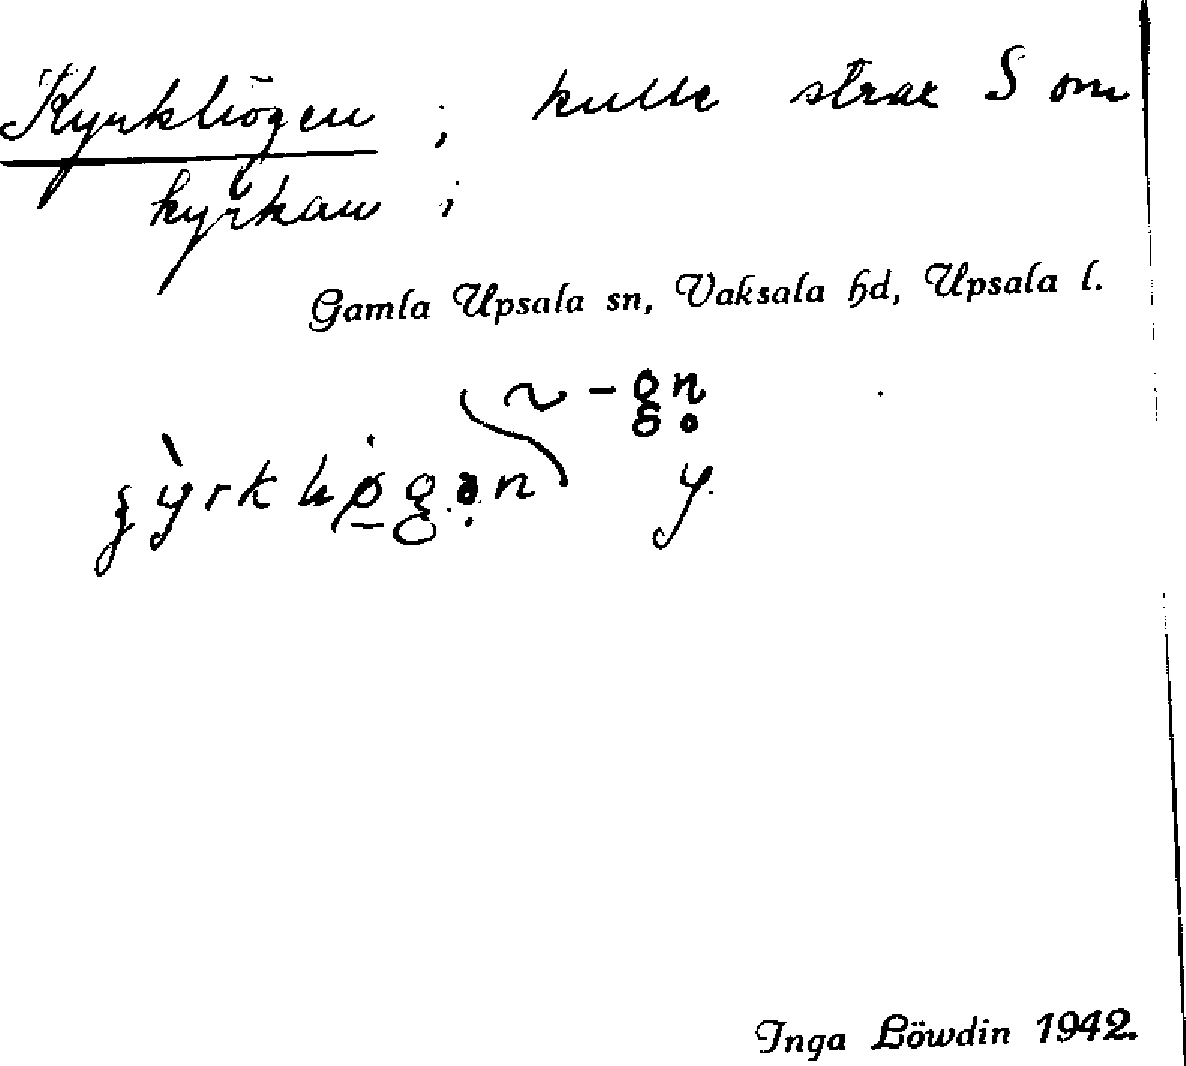 Kyrkhögen ; kulle strax S om
kyrkan ;
Gamla Upsala sn, Vaksala hd, Upsala l.
~ -gn̥
y
Inga Löwdin 1942.